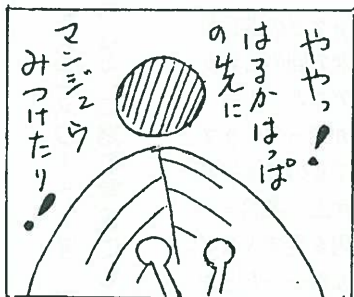 ややっ!
はるかはっぱ
の先に
マンジュウ
みつけたり!